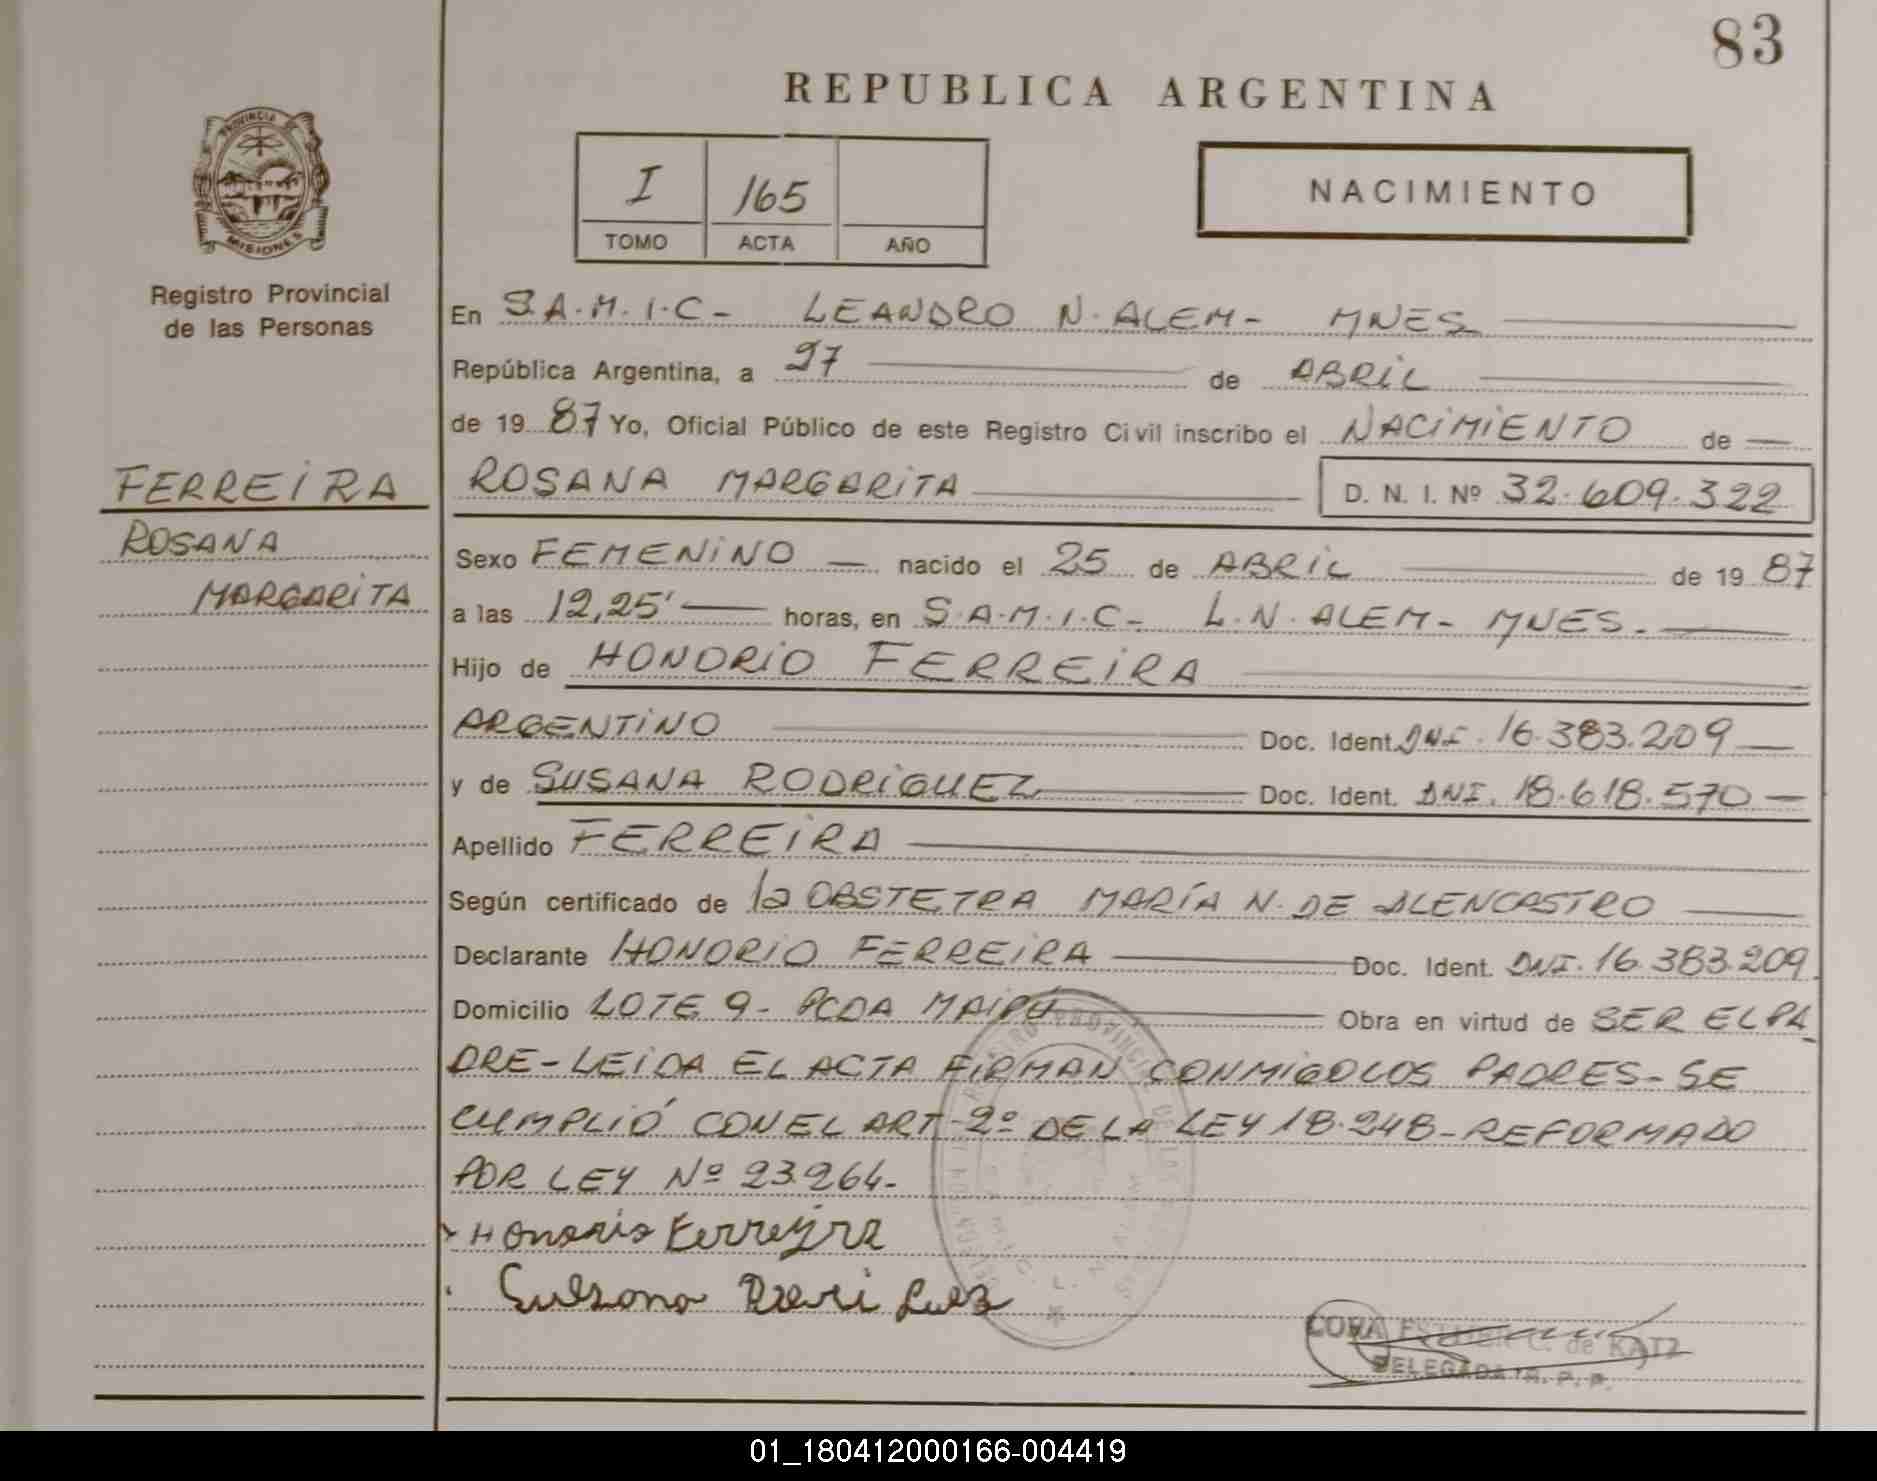 83
REPUBLICA ARGENTINA
PROVINCIA DE
MISIONES
Registro Provincial
de las Personas
I 165
TOMO ACTA AÑO
NACIMIENTO
En S.A.M.I.C- LEANDRO N. ALEM- MNES
República Argentina, a 27 de ABRIL
de 19 87 Yo, Oficial Público de este Registro Civil inscribo el NACIMIENTO de
FERREIRA
ROSANA
MARGARITA
ROSANA MARGARITA D. N. I. Nº 32.609.322
Sexo FEMENINO nacido el 25 de ABRIL de 19 87
a las 12,25' horas, en S.A.M.I.C- L.N. ALEM- MNES.
Hijo de HONORIO FERREIRA
ARGENTINO Doc. Ident. DNI. 16.383.209
y de SUSANA RODRIGUEZ Doc. Ident. DNI. 18.618.570
Apellido FERREIRA
Según certificado de la OBSTETRA MARÍA N. DE ALENCASTRO
Declarante HONORIO FERREIRA Doc. Ident. DNI. 16.383.209
Domicilio LOTE 9- PCDA MAIPÚ Obra en virtud de SER EL PA
DRE-LEIDA EL ACTA FIRMAN CONMIGO LOS PADRES- SE
CUMPLIÓ CON EL ART-2º DE LA LEY 18.248-REFORMADO
POR LEY Nº 23.264-
Honorio Ferreyra
CORA C. de KATZ
DELEGADA R. P. P.
01_180412000166-004419